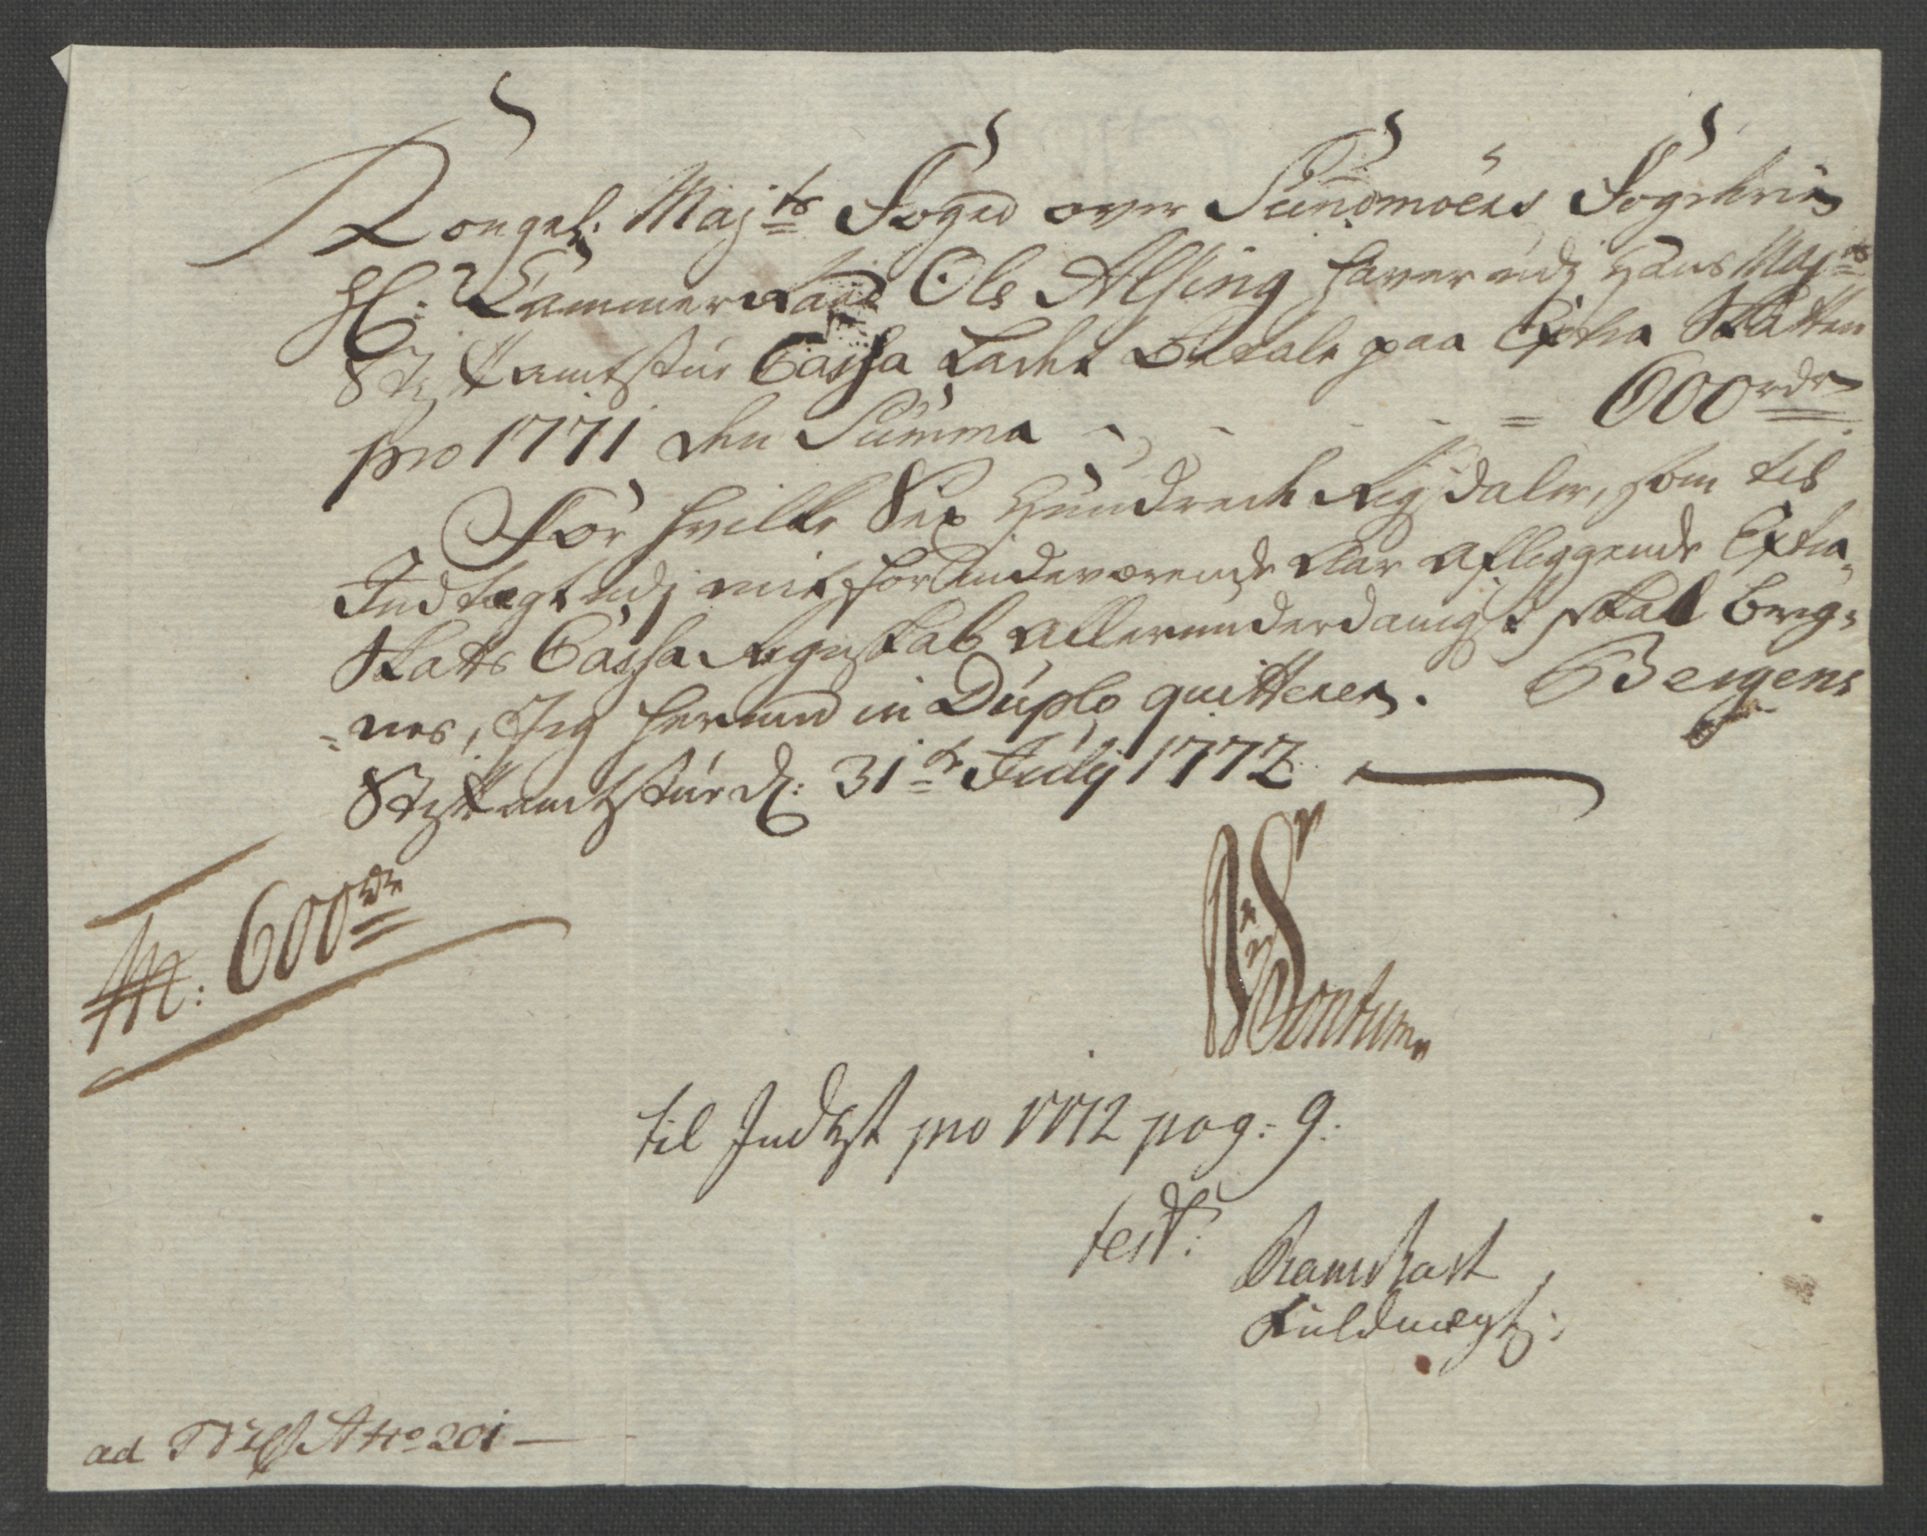 Kongel: Maj:ts Foged over Sundmöers Fogderie
Hr: Cammer Raad Ole Alsing haver udj Hans Maj:ts
Stiftamtstue Cassa Ladet Betale paa Extra Skatten
pro 1771 den Summa - - - - - = 600 rdr
For hvilke Sex Hundrede Rigsdaler, som til
Indtægt udj mit for indeværende Aar Aflæggende Extra
Skatts Cassa Regnskab allerunderdanigst skal bereg-
=nes, Jeg herved in Duplo quitterer. Bergens
Stiftamtstue d: 31te Julij 1772
600 rdr
Sontum
til Indtægt pro 1772 pag: 9:
test:
Fuldmægt:
ad No 201